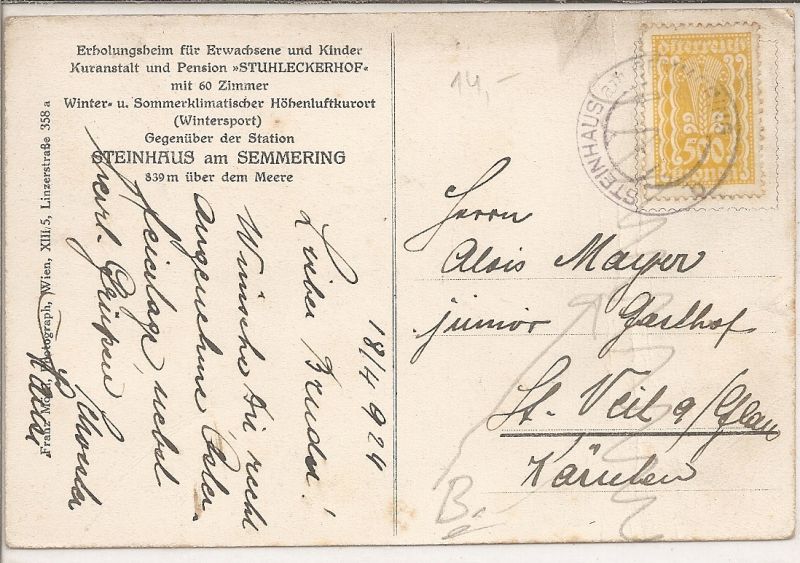 Erholungsheim für Erwachsene und Kinder
Kuranstalt und Pension »STUHLECKERHOF«
mit 60 Zimmer
Winter- u. Sommerklimatischer Höhenluftkurort
(Wintersport)
Gegenüber der Station
STEINHAUS am SEMMERING
839 m über dem Meere
Franz Photograph, Wien, XIII/5, Linzerstraße 358 a
18/4 924
Lieber Bruder!
Wünsche Dir recht
angenehme Oster-
feiertage nebst
herzl. Grüßen
14,-
österreich
500
STEINHAUS a.
Herrn
Alois Mayer
junior Gasthof
St. Veit a/Glan
Kärnten
B.